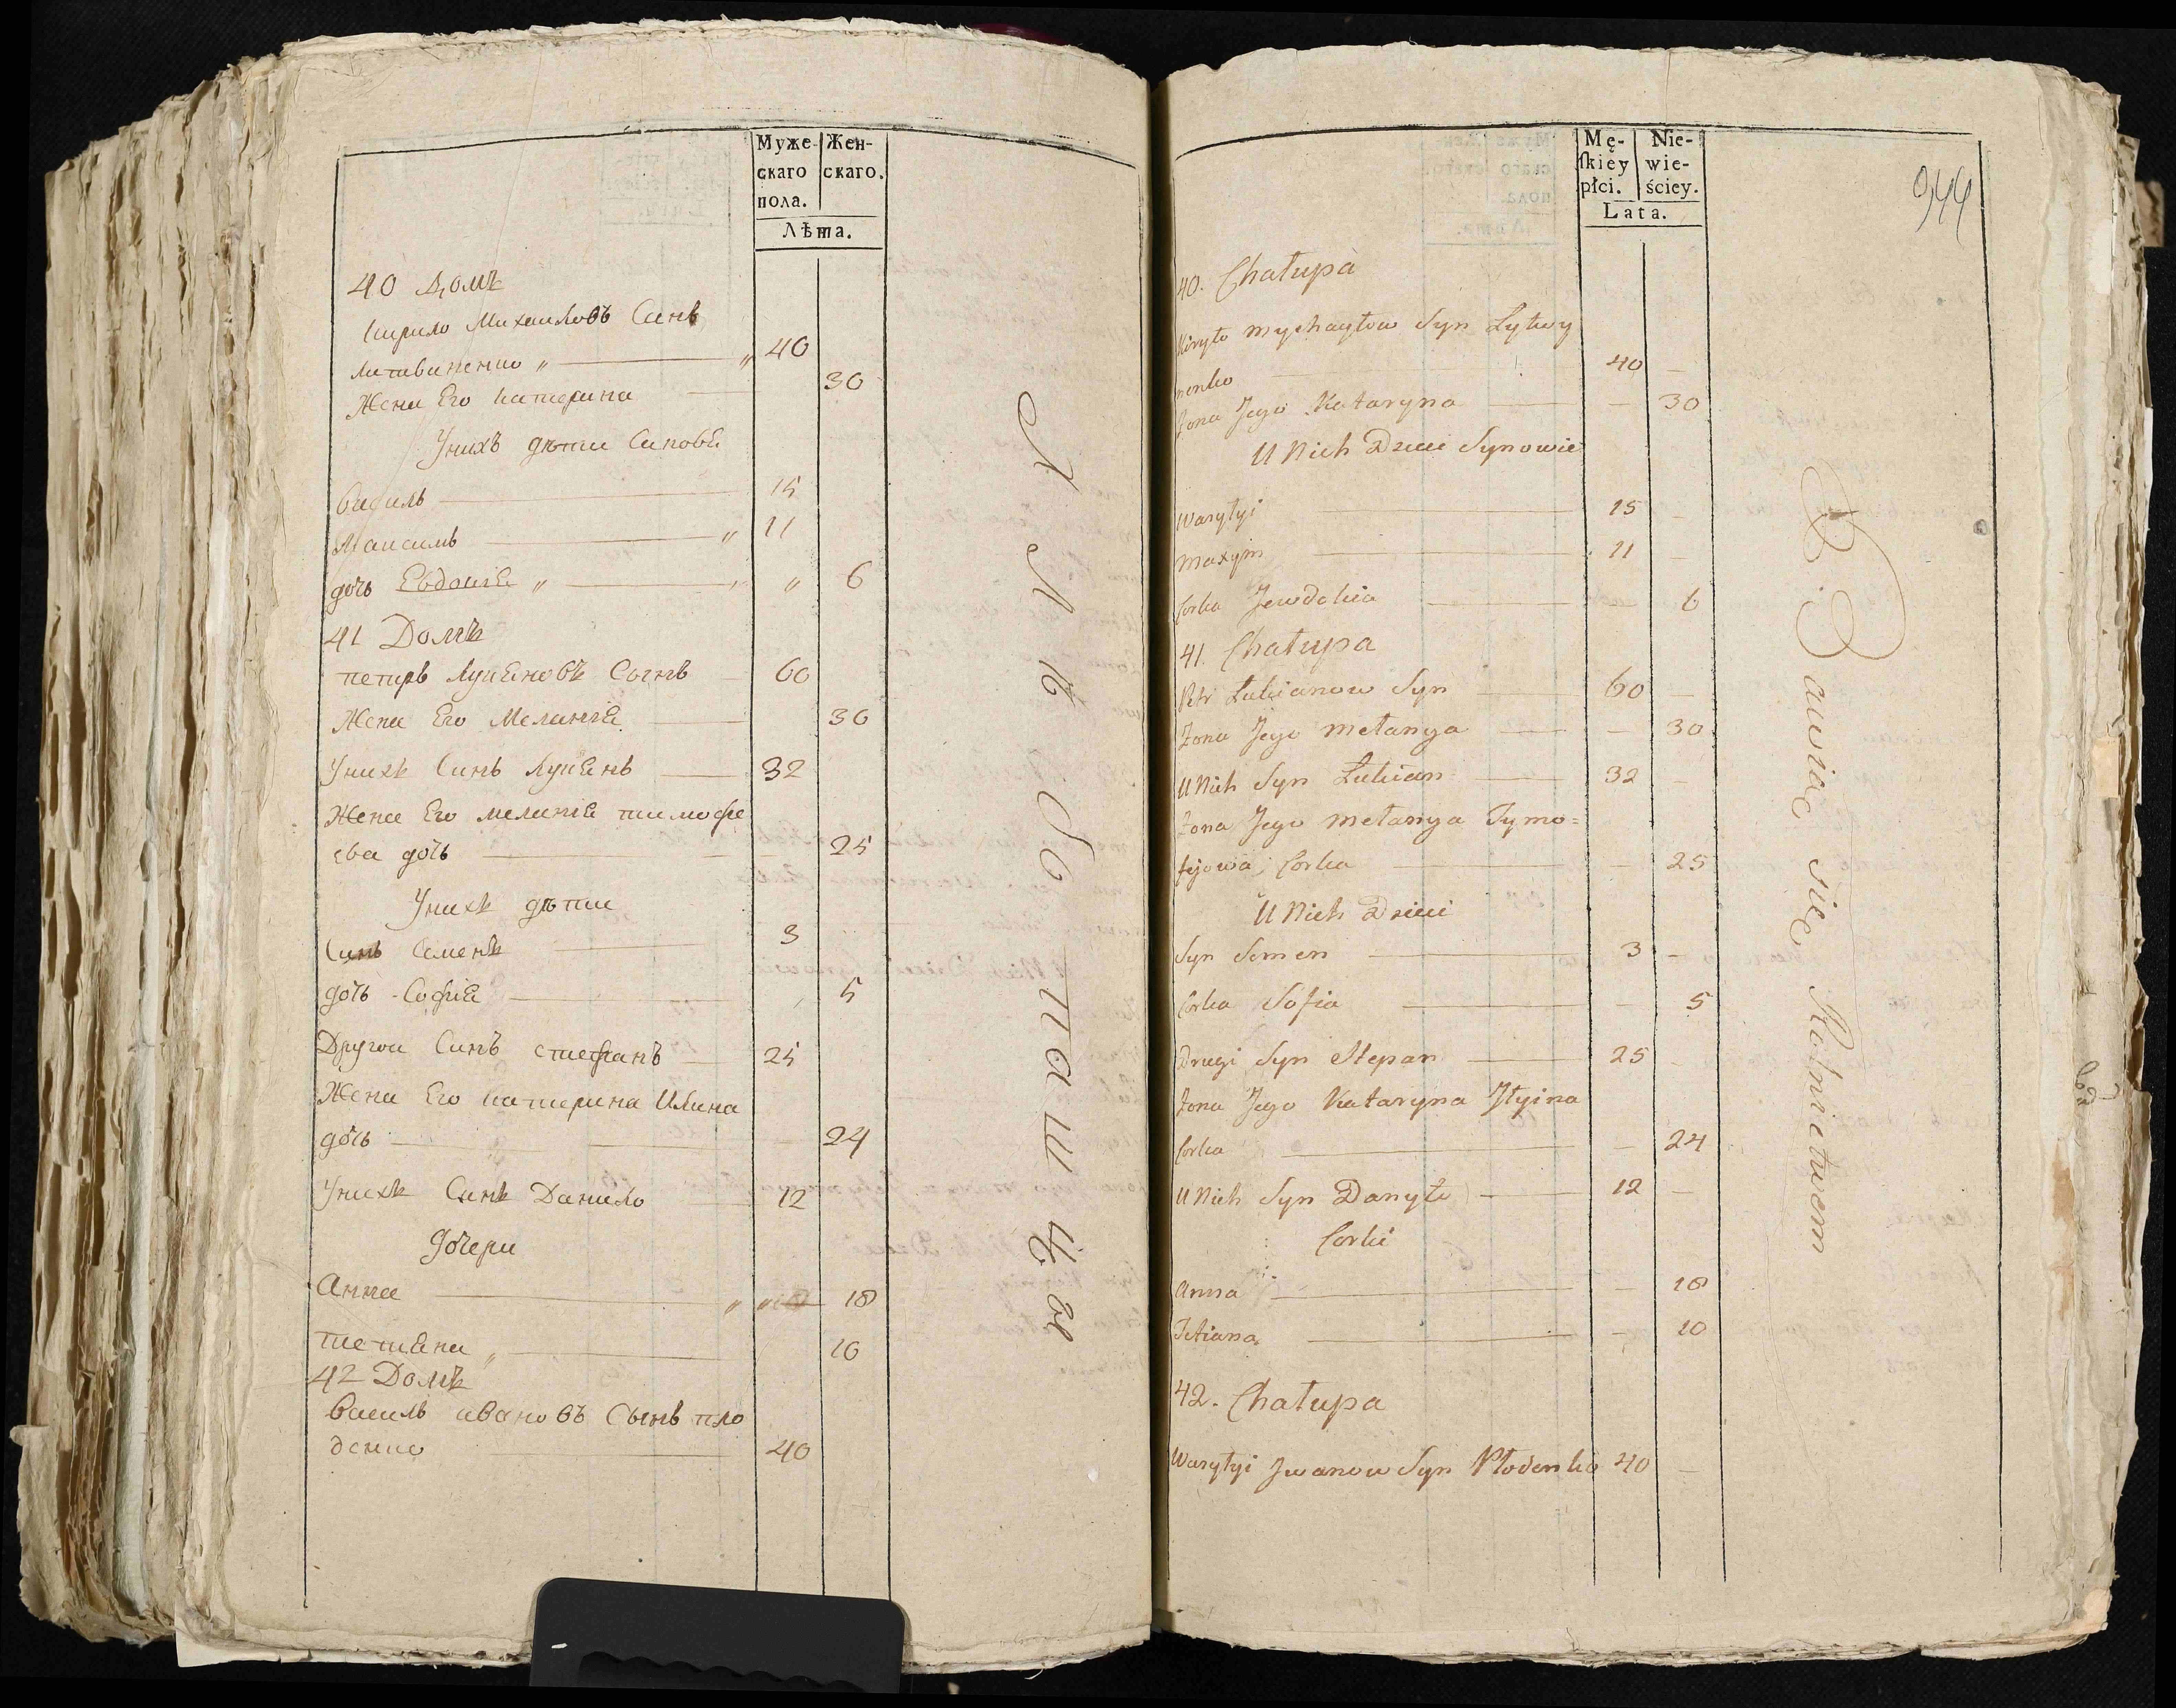 Муже-
скаго
пола.
Жен-
скаго.
Лѣта.
40 Домъ
Кирило Михаиловъ Синъ
литвиненко 40
Жена Его катерина 30
Унихъ дѣти Синовя
Василь 15
Максимъ 11
дочь Евдокія 6
41 Домъ
петиръ Лукяновъ Сынъ 60
Жена Его Меланія 30
Унихъ Синъ Лукянъ 32
Жена Его меланія тимофе
ева дочь 25
Унихъ дѣти
Синъ Семенъ 3
дочь Софія 5
Другои Синъ стефанъ 25
Жена Его катерина Илина
дочь 24
Унихъ Синъ Данило 12
дочери
Анна 18
тетяна 10
42 Домъ
василь ивановъ Сынъ пло
денко 40
Mę-
skiey
płci.
Nie-
wie-
ściey.
Lata.
944
40. Chałupa
Kiryło Mychayłow Syn Lytwy
nenko 40
Zona Jego Kataryna 30
U Nich Dzieci Synowie
Wasylyi 15
Maxym 11
Corka Jewdokia 6
41. Chałupa
Petr Łukianow Syn 60
Zona Jego Melanya 30
U Nich Syn Łukian 32
Zona Jego Melanya Tymo=
fejowa Corka 25
U Nich Dzieci
Syn Semen 3
Corka Sofia 5
Drugi Syn Stepan 25
Zona Jego Kataryna Jłyina
Corka 24
U Nich Syn Danyło 12
Corki
Anna 18
Tetiana 10
42. Chałupa
Wasylyi Jwanow Syn Płodenko 40
Bawiąc się Rolnictwem